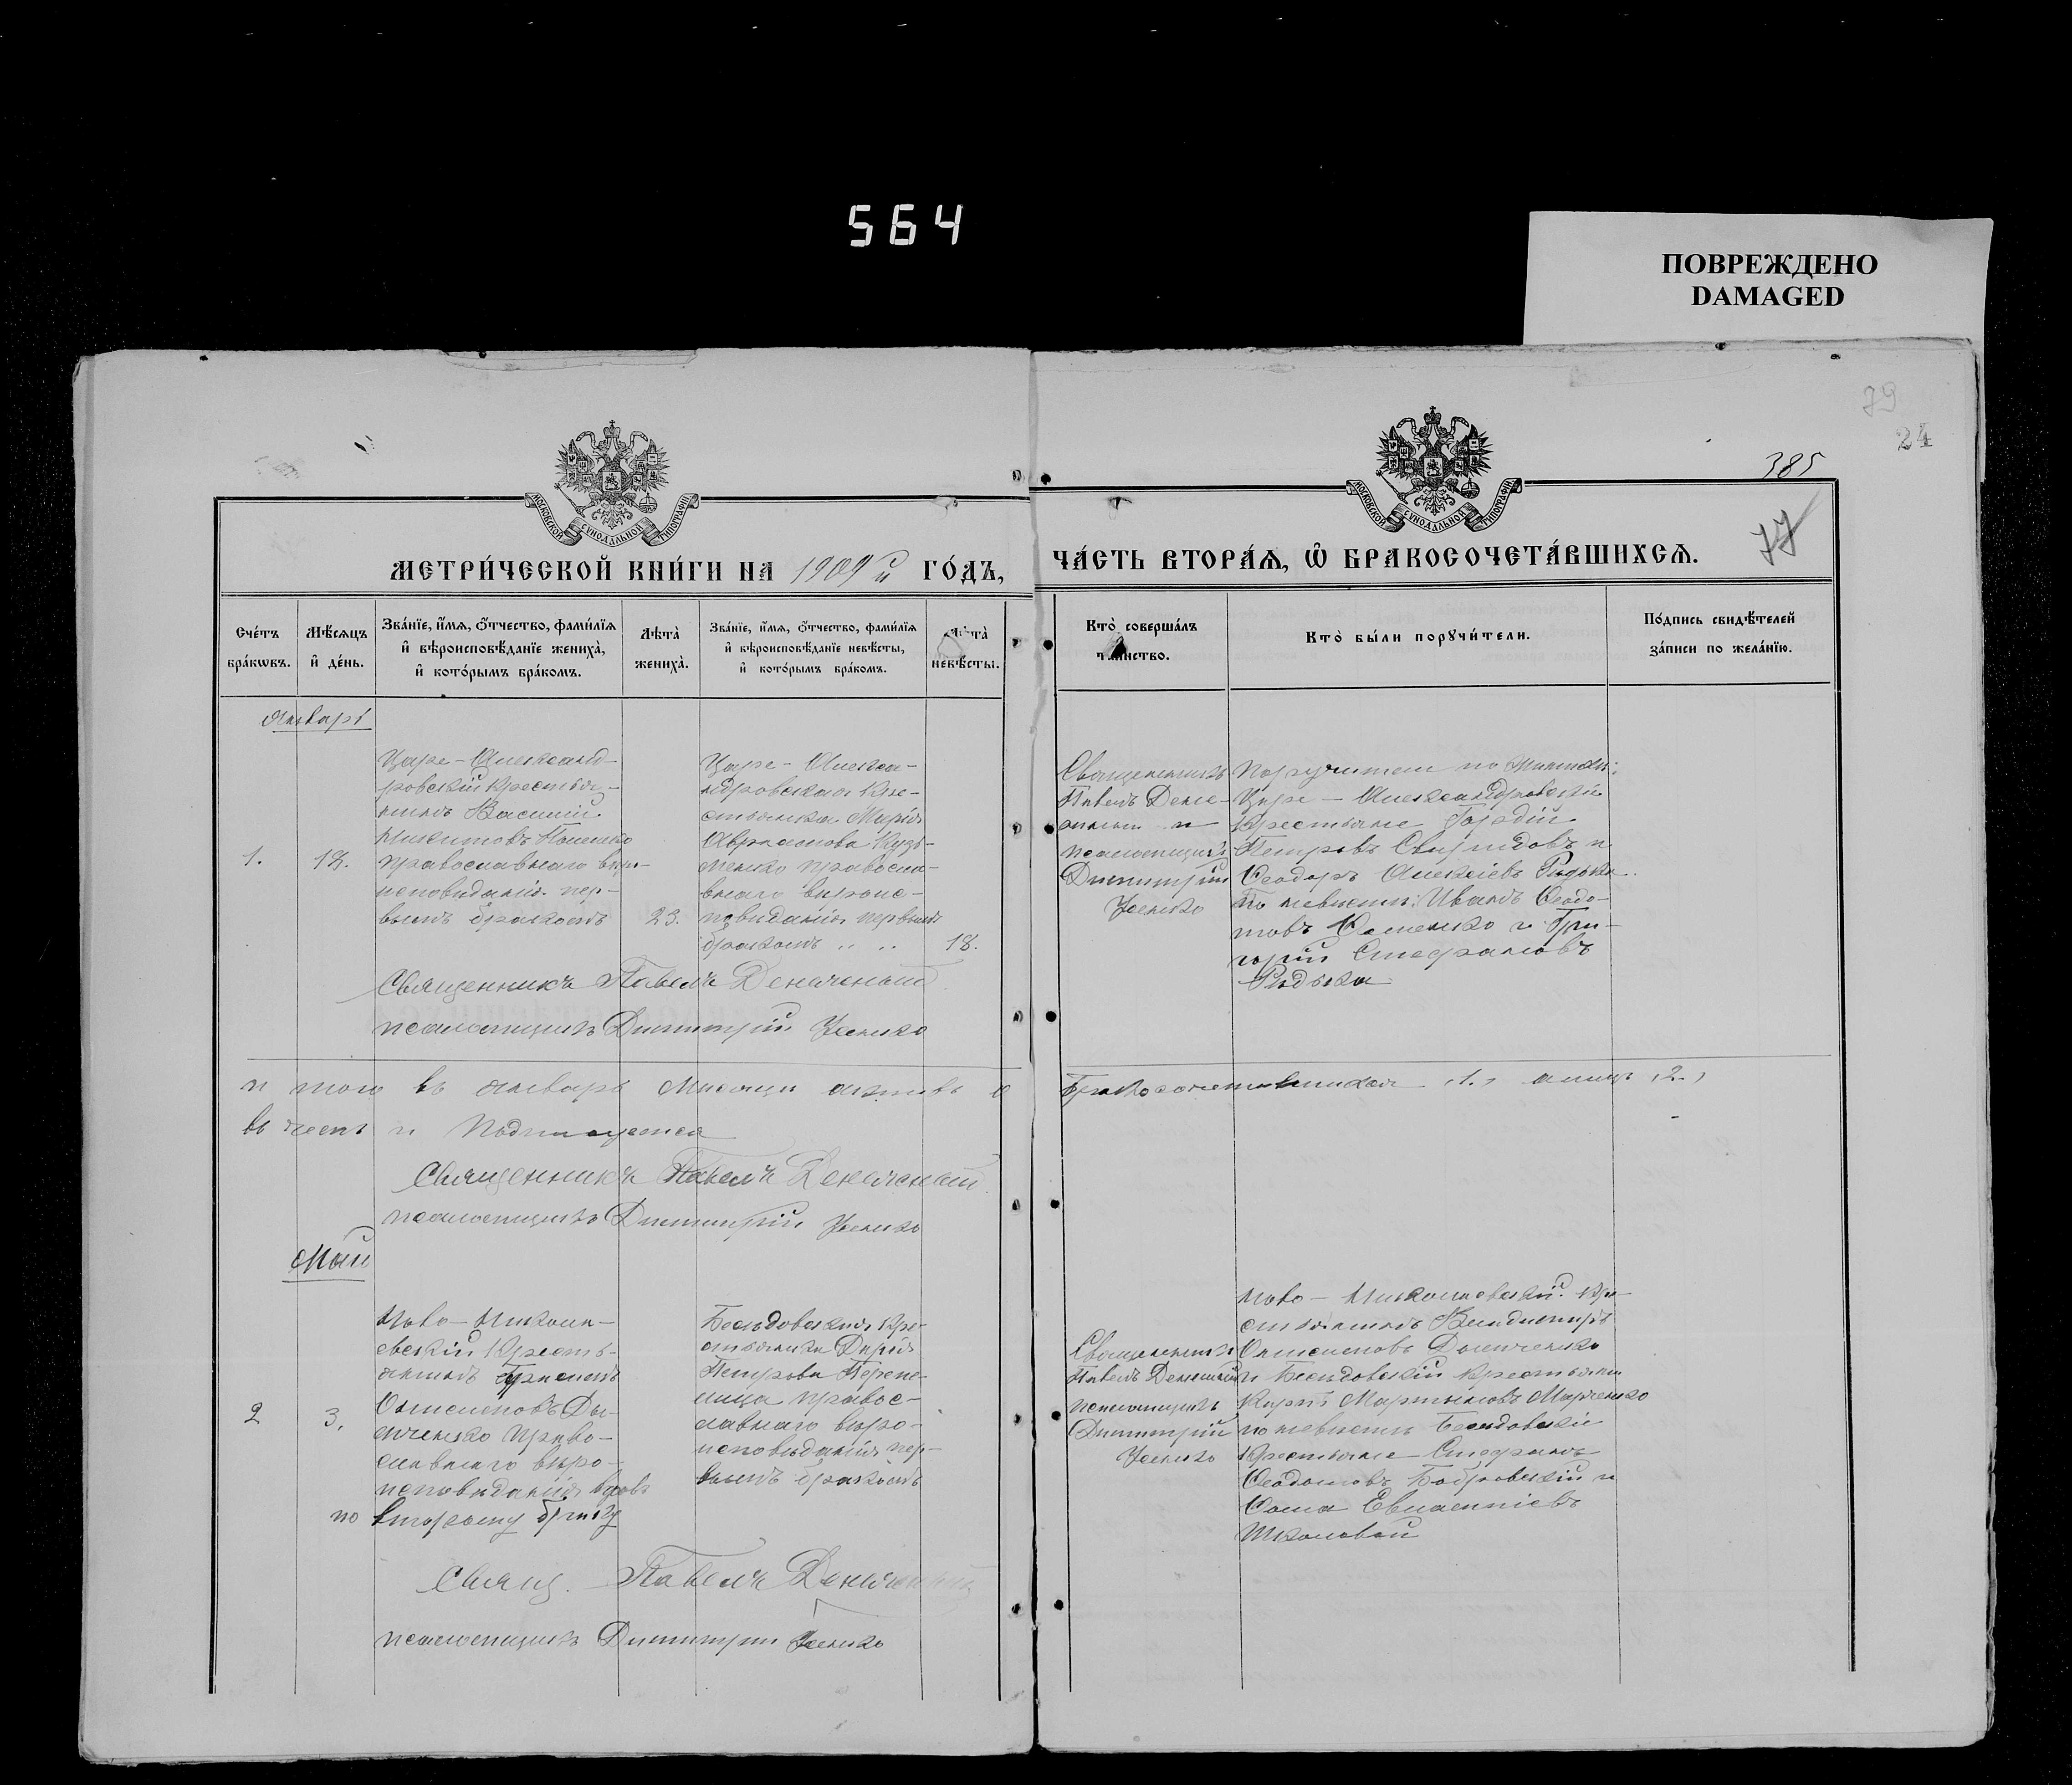 564
ПОВРЕЖДЕНО
DAMAGED
79
24
385
77
МОСКОВСКОЙ СУНОДАЛЬНОЙ ТИПОГРАФІИ
МОСКОВСКОЙ СУНОДАЛЬНОЙ ТИПОГРАФІИ
МЕТРИ́ЧЕСКОЙ КНИ́ГИ НА 1909 й ГО́ДЪ,
ЧА́СТЬ ВТОРА́Ѧ, Ѽ БРАКОСОЧЕТА́ВШИХСѦ.
Сче́тъ бра́кѡвъ.
Мѣ́сѧцъ и҆ де́нь.
Зва́нїе, и҆́мѧ, ѻ҆́тчество, фами́лїѧ
и҆ вѣроисповѣ́данїе жениха̀,
и҆ кото́рымъ бра́комъ.
Лѣ́та̀ жениха̀.
Зва́нїе, и҆́мѧ, ѻ҆́тчество, фами́лїѧ
и҆ вѣроисповѣ́данїе невѣ́сты,
и҆ кото́рымъ бра́комъ.
Лѣ́та̀ невѣ́сты.
Кто̀ соверша́лъ
та́инство.
Кто̀ бы́ли порꙋчи́тели.
По́дпись свидѣ́телей
за́писи по жела́нїю.
Январь
1.
Царе-Александ-
ровскій крестья-
нинъ Василий
Никитовъ
православнаго вѣро-
исповѣданія пер-
вымъ бракомъ
23.
Царе-Алекса-
ндровская кре-
стьянка Марія
Авраамова Кузь-
менко правосла-
внаго вѣроис-
повѣданія первымъ
бракомъ „ „
18.
Священникъ
Павелъ
и
псаломщикъ
Димитрій
Усенко
Поручители по женихѣ:
Царе-Александровскіе
крестьяне Гордій
Петровъ Свиридовъ и
Ѳеодоръ Алексіевъ Рядька.
По невѣсте: Иванъ Ѳеодо-
товъ и Гри-
горій Стефановъ
Рядька
Священникъ Павелъ
псаломщикъ Димитрій Усенко
и того въ январѣ мѣсяцѣ актовъ о
Бракосочетавшихся „1„ а лицъ „2„
въ чемъ и подписуемся
Священникъ Павелъ
псаломщикъ Димитрій Усенко
Май
2
3.
Ново-Никола-
евскій кресть-
янинъ
Антоновъ Дом-
нченко право-
славнаго вѣро-
исповѣданія вдовъ
по второму браку
Бесѣдовская кре-
стьянка Дарія
Петрова Перепе-
лица правос-
лавнаго вѣро-
исповѣданія пер-
вымъ бракомъ
Священникъ
Павелъ
псаломщикъ
Димитрій
Усенко
Ново-Николаевскій кре-
стьянинъ Владимиръ
и Бесѣдовскій крестьянинъ
Мартыновъ Марченко
по невѣсте Бесѣдовскіе
крестьяне Стефанъ
Ѳеодотовъ Бобровскій и
Ѳома
Школовой
Свящ. Павелъ
псаломщикъ Димитрій Усенко